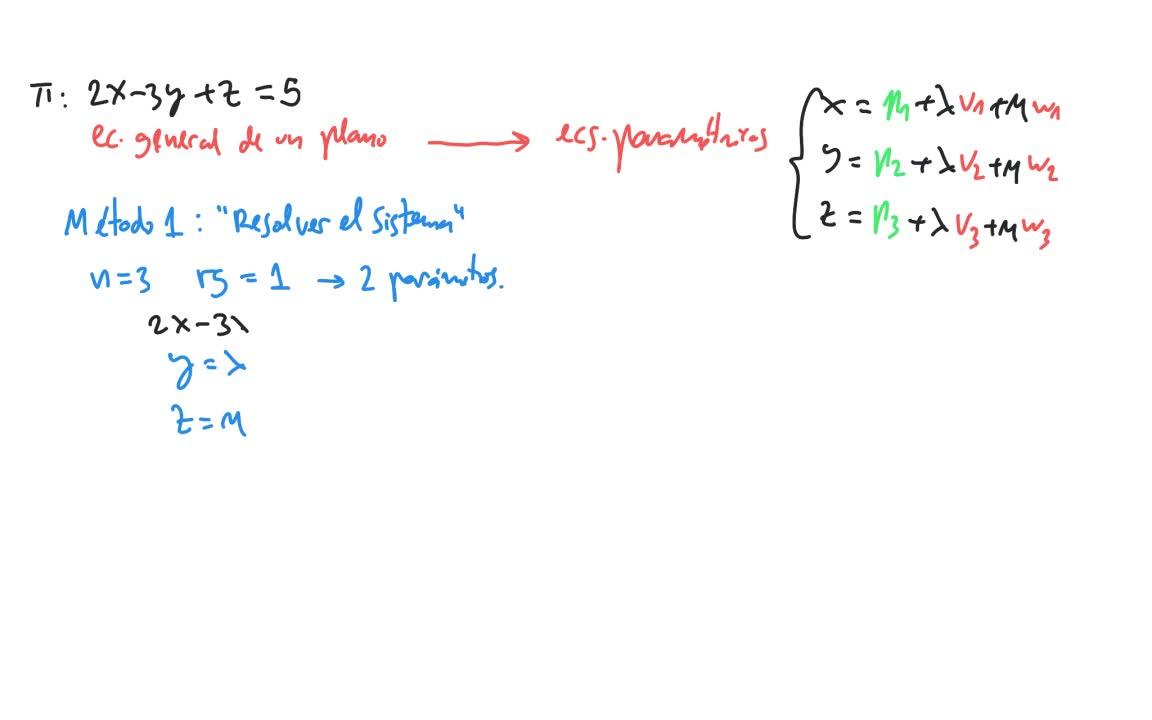 π: 2x-3y+z=5
ec. general de un plano → ecs. paramétricas
x = p1+λv1+μw1
y = p2+λv2+μw2
z = p3+λv3+μw3
Método 1: "Resolver el sistema"
n=3 rg=1 → 2 parámetros.
2x-3λ
y=λ
z=μ